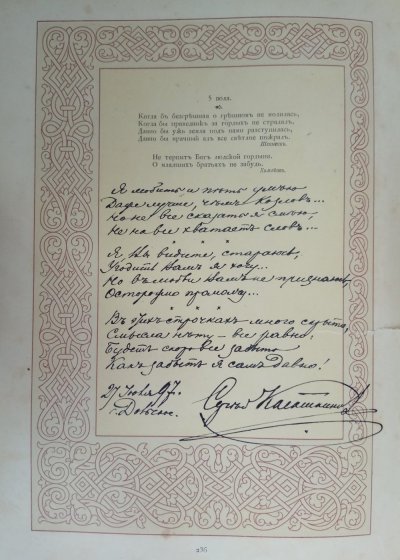 5 юля.
Когда бъ безгрѣшная о грѣшномъ не молилась,
Когда бы праведникъ за гордыхъ не страдалъ,
Давно бы ужъ земля подъ нами разступилась,
Давно бы мрачный адъ все свѣтлое пожралъ.
Не терпитъ Богъ людской гордыни.
О меньшихъ братьяхъ не забудь.
Хомяковъ.
Я любить и пѣть умѣю
Даже лучше, чѣмъ Козловъ...
Но не все сказать я смѣю,
Не на все хватаетъ словъ...
Я, Вы видите, стараюсь,
Угодить Вамъ я хочу...
Но въ любви Вамъ не признаюсь,
Осторожно промолчу...
Въ этихъ строчкахъ много скрыто,
Смысла нѣтъ – все равно,
Будетъ скоро все забыто
Какъ забытъ я самъ давно!
27 Июля 97.
г.
236